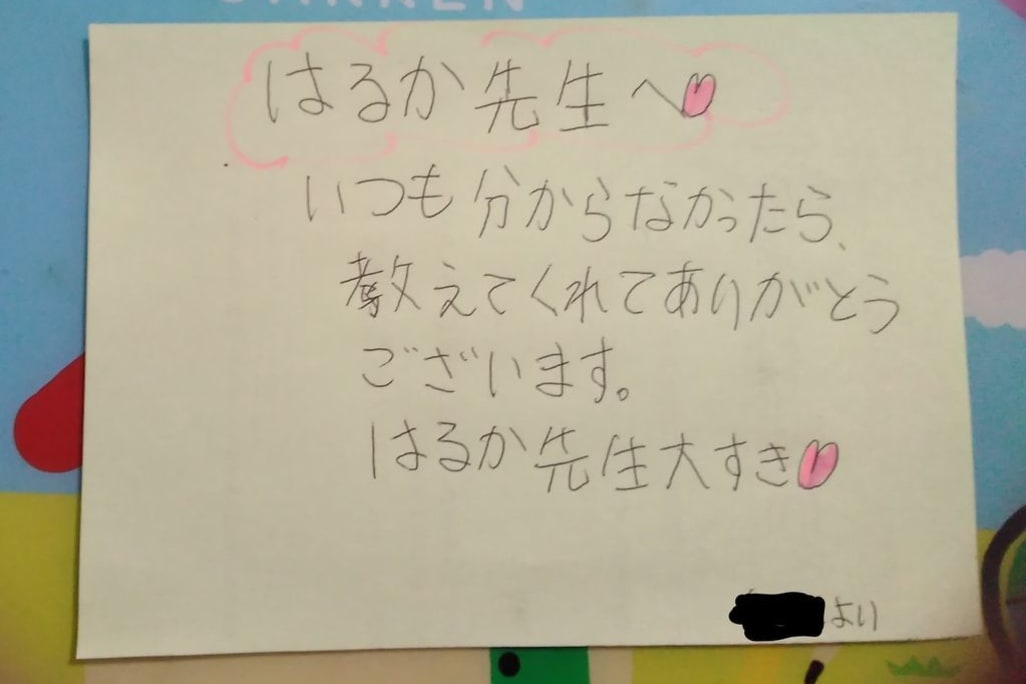 はるか先生へ
いつも分からなかったら、
教えてくれてありがとう
ございます。
はるか先生大すき
よい